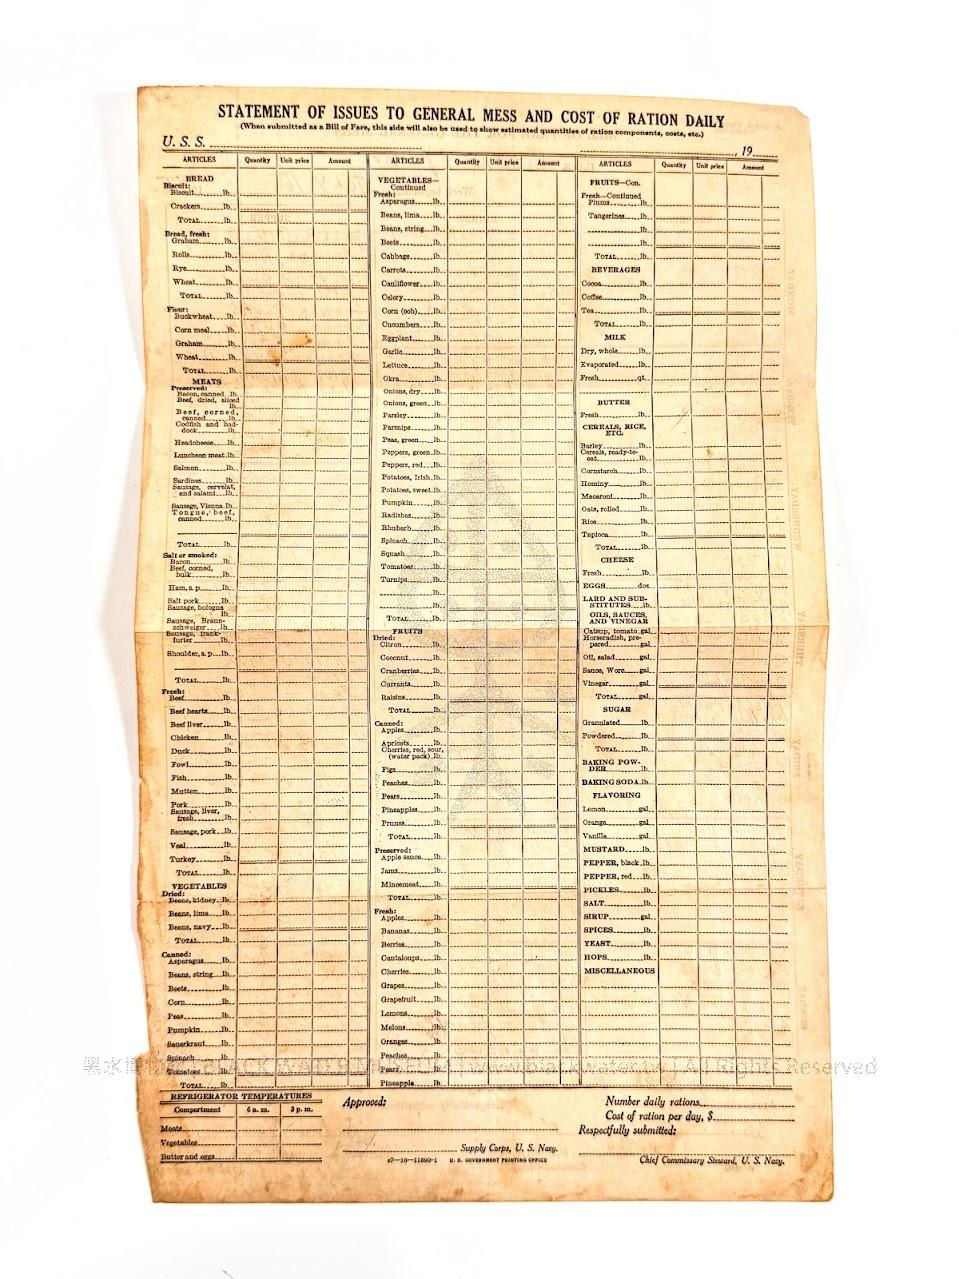 STATEMENT OF ISSUES TO GENERAL MESS AND COST OF RATION DAILY
(When submitted as a Bill of Fare, this side will also be used to show estimated quantities of ration components, costs, etc.)
U. S. S. , 19
ARTICLES Quantity Unit price Amount
BREAD
Biscuit:
Biscuit lb.
Crackers lb.
TOTAL lb.
Bread, fresh:
Graham lb.
Rolls lb.
Rye lb.
Wheat lb.
TOTAL lb.
Flour:
Buckwheat lb.
Corn meal lb.
Graham lb.
Wheat lb.
TOTAL lb.
MEATS
Preserved:
Bacon, canned lb.
Beef, dried, sliced
lb.
Beef, corned,
canned lb.
Codfish and had-
dock lb.
Headcheese lb.
Luncheon meat lb.
Salmon lb.
Sardines lb.
Sausage, cervelat,
and salami lb.
Sausage, Vienna lb.
Tongue, beef,
canned lb.
TOTAL lb.
Salt or smoked:
Bacon lb.
Beef, corned,
bulk lb.
Ham, s. p. lb.
Salt pork lb.
Sausage, bologna
lb.
Sausage, Braun-
schweiger lb.
Sausage, frank-
furter lb.
Shoulder, s. p. lb.
TOTAL lb.
Fresh:
Beef lb.
Beef hearts lb.
Beef liver lb.
Chicken lb.
Duck lb.
Fowl lb.
Fish lb.
Mutton lb.
Pork lb.
Sausage, liver,
fresh lb.
Sausage, pork lb.
Veal lb.
Turkey lb.
TOTAL lb.
VEGETABLES
Dried:
Beans, kidney lb.
Beans, lima lb.
Beans, navy lb.
TOTAL lb.
Canned:
Asparagus lb.
Beans, string lb.
Beets lb.
Corn lb.
Peas lb.
Pumpkin lb.
Sauerkraut lb.
Spinach lb.
Tomatoes lb.
TOTAL lb.
ARTICLES Quantity Unit price Amount
VEGETABLES—
Continued
Fresh:
Asparagus lb.
Beans, lima lb.
Beans, string lb.
Beets lb.
Cabbage lb.
Carrots lb.
Cauliflower lb.
Celery lb.
Corn (cob) lb.
Cucumbers lb.
Eggplant lb.
Garlic lb.
Lettuce lb.
Okra lb.
Onions, dry lb.
Onions, green lb.
Parsley lb.
Parsnips lb.
Peas, green lb.
Peppers, green lb.
Peppers, red lb.
Potatoes, Irish lb.
Potatoes, sweet lb.
Pumpkin lb.
Radishes lb.
Rhubarb lb.
Spinach lb.
Squash lb.
Tomatoes lb.
Turnips lb.
lb.
lb.
TOTAL lb.
FRUITS
Dried:
Citron lb.
Coconut lb.
Cranberries lb.
Currants lb.
Raisins lb.
TOTAL lb.
Canned:
Apples lb.
Apricots lb.
Cherries, red, sour,
(water pack) lb.
Figs lb.
Peaches lb.
Pears lb.
Pineapples lb.
Prunes lb.
TOTAL lb.
Preserved:
Apple sauce lb.
Jams lb.
Mincemeat lb.
TOTAL lb.
Fresh:
Apples lb.
Bananas lb.
Berries lb.
Cantaloups lb.
Cherries lb.
Grapes lb.
Grapefruit lb.
Lemons lb.
Melons lb.
Oranges lb.
Peaches lb.
Pears lb.
Pineapple lb.
ARTICLES Quantity Unit price Amount
FRUITS—Con.
Fresh—Continued
Plums lb.
Tangerines lb.
lb.
lb.
TOTAL lb.
BEVERAGES
Cocoa lb.
Coffee lb.
Tea lb.
TOTAL lb.
MILK
Dry, whole lb.
Evaporated lb.
Fresh qt.
BUTTER
Fresh lb.
CEREALS, RICE,
ETC.
Barley lb.
Cereals, ready-to-
eat lb.
Cornstarch lb.
Hominy lb.
Macaroni lb.
Oats, rolled lb.
Rice lb.
Tapioca lb.
TOTAL lb.
CHEESE
Fresh lb.
EGGS doz.
LARD AND SUB-
STITUTES lb.
OILS, SAUCES,
AND VINEGAR
Catsup, tomato gal.
Horseradish, pre-
pared gal.
Oil, salad gal.
Sauce, Wore gal.
Vinegar gal.
TOTAL gal.
SUGAR
Granulated lb.
Powdered lb.
TOTAL lb.
BAKING POW-
DER lb.
BAKING SODA lb.
FLAVORING
Lemon gal.
Orange gal.
Vanilla gal.
MUSTARD lb.
PEPPER, black lb.
PEPPER, red lb.
PICKLES lb.
SALT lb.
SIRUP gal.
SPICES lb.
YEAST lb.
HOPS lb.
MISCELLANEOUS
REFRIGERATOR TEMPERATURES
Compartment 6 a. m. 3 p. m.
Meats
Vegetables
Butter and eggs
Approved:
Supply Corps, U. S. Navy.
U. S. GOVERNMENT PRINTING OFFICE
Number daily rations
Cost of ration per day, $
Respectfully submitted:
Chief Commissary Steward, U. S. Navy.
All Rights Reserved